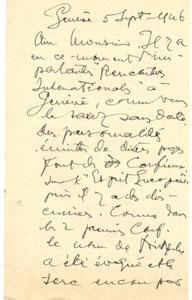 Genève 5 Sept-1946
Cher Monsieur Il y a
en ce moment d'im-
portantes Rencontres
Internationales à
Genève, comme vous
le savez sans doute
des personnalités
éminentes de divers pays
font des Conférences
sur l'Esprit Européen
puis il y a des dis-
cussions. Comme dans
les 2 premières Conf.
le nom de
a été évoqué et le
sera encore par